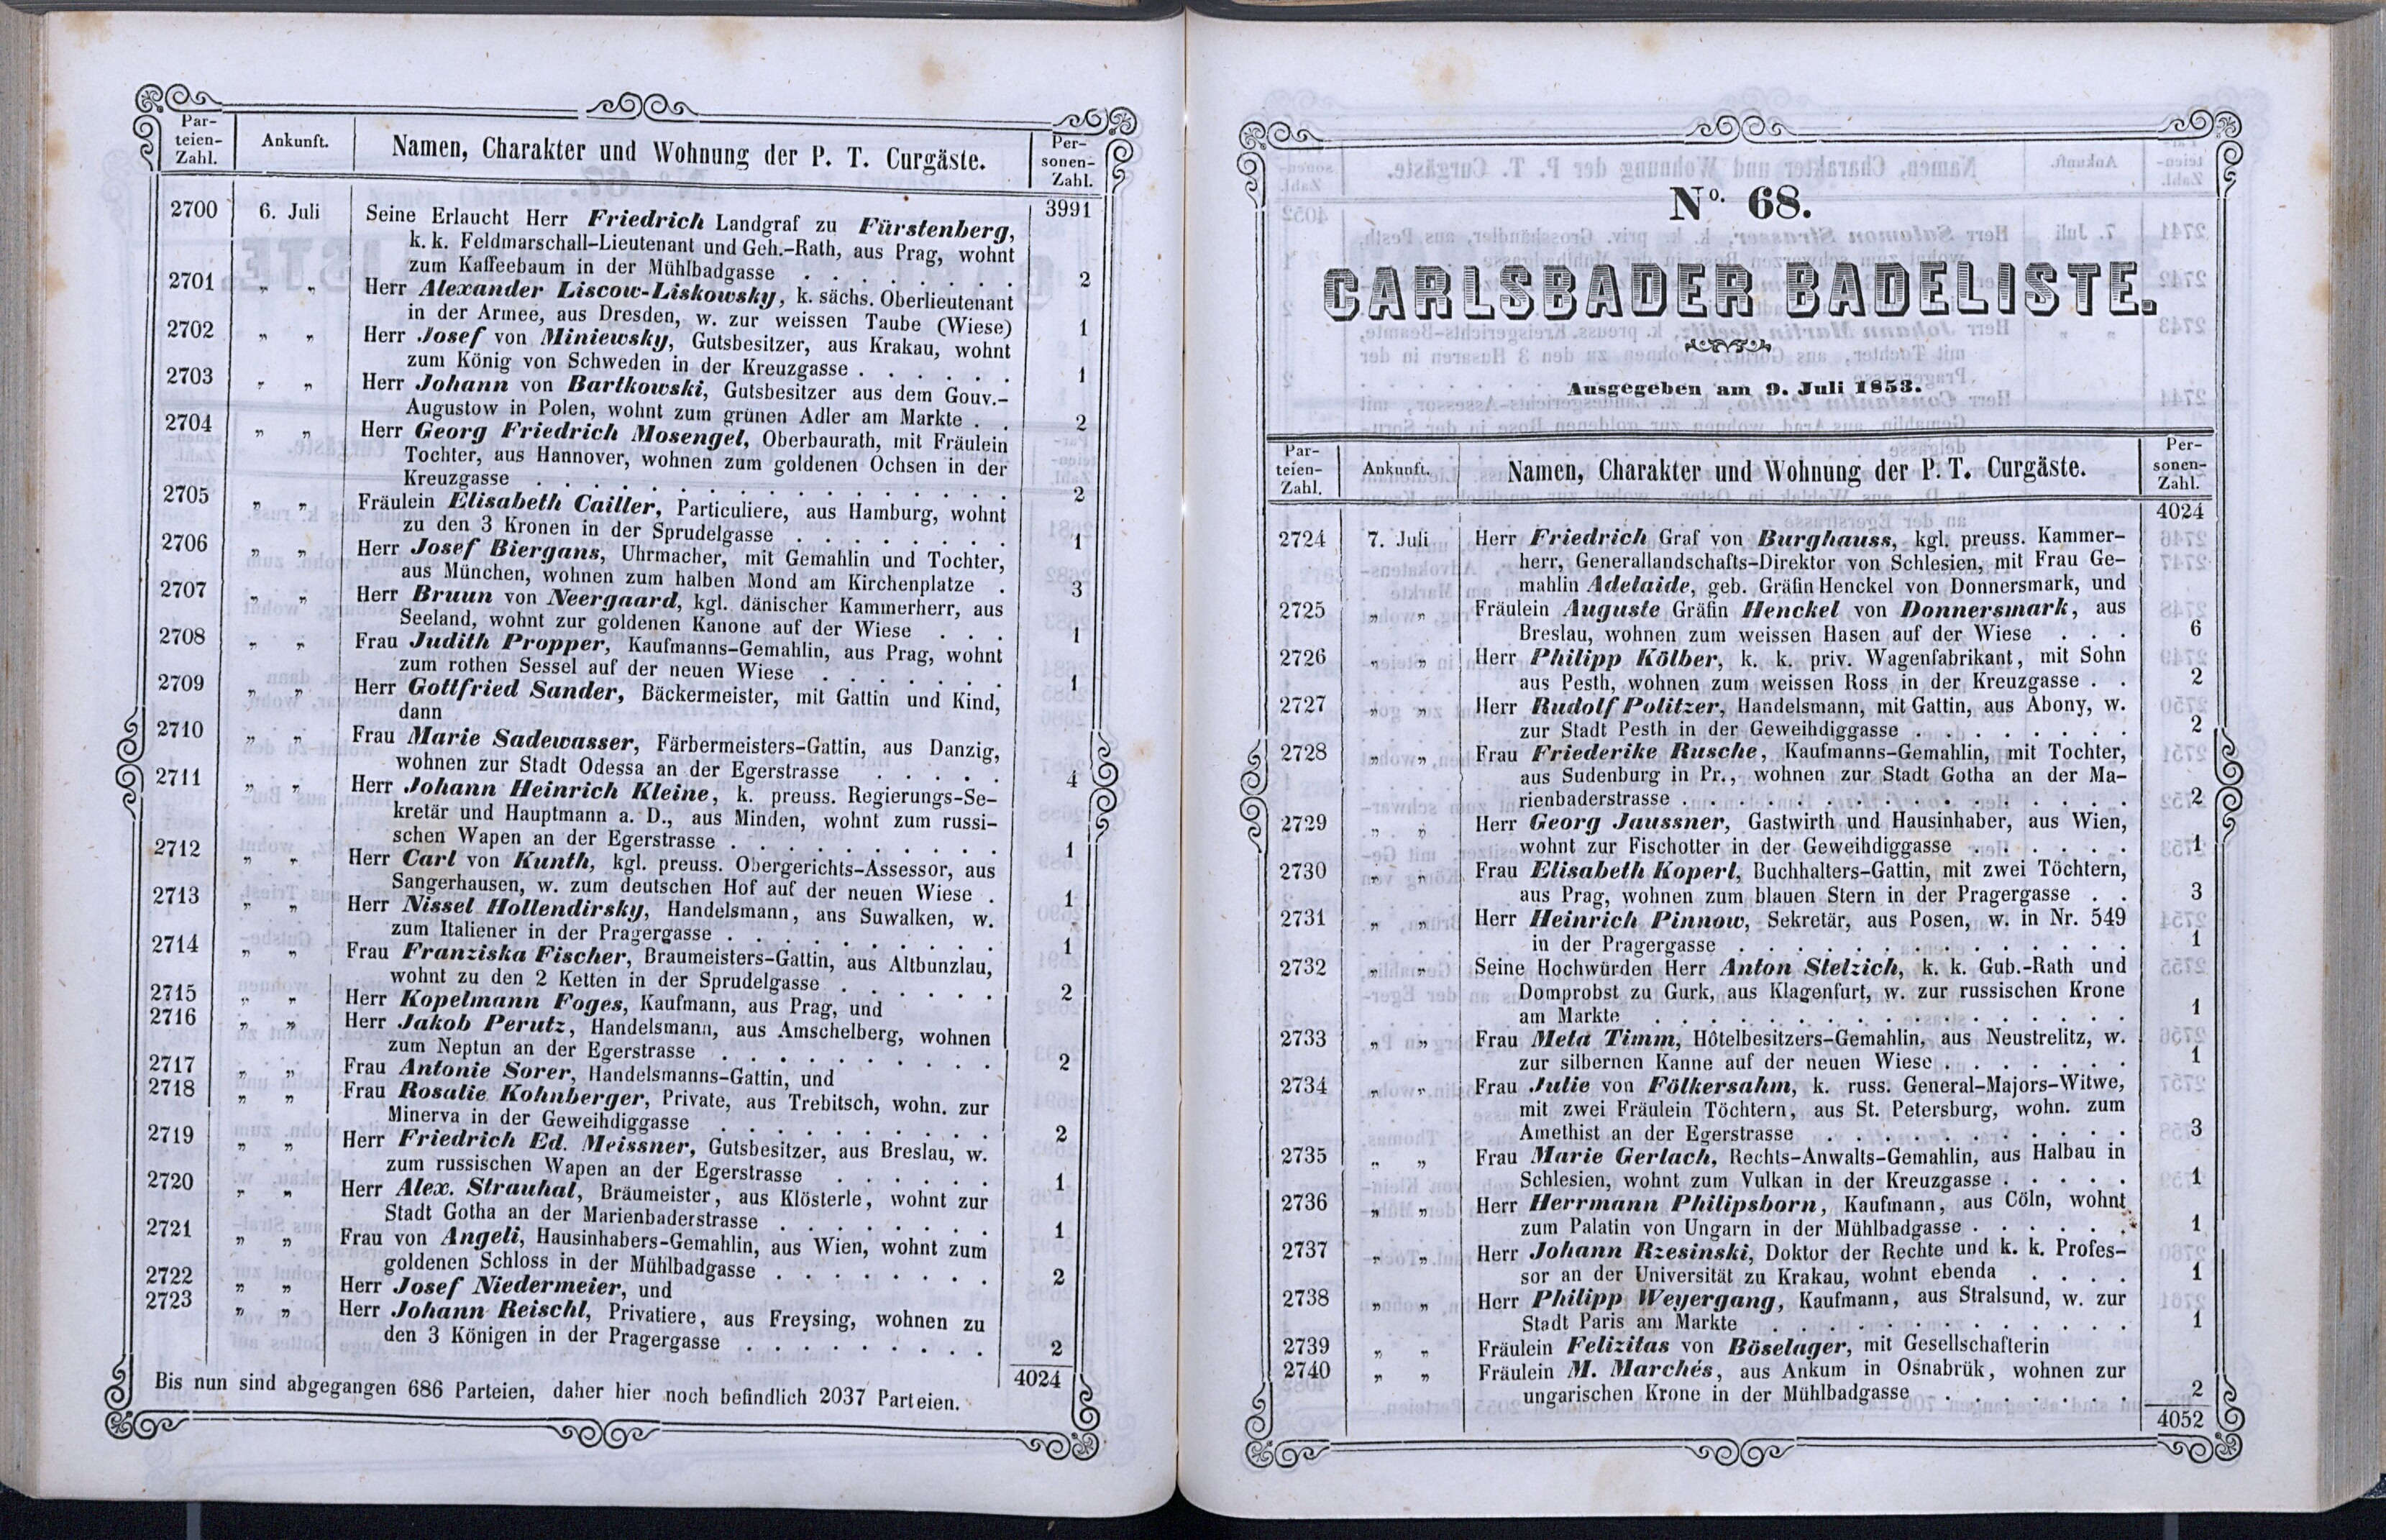 Par-
teien-
Zahl.
Ankunft.
Namen, Charakter und Wohnung der P. T. Curgäste.
Per-
sonen-
Zahl.
3991
2700 6. Juli Seine Erlaucht Herr Friedrich Landgraf zu Fürstenberg,
k. k. Feldmarschall-Lieutenant und Geh.-Rath, aus Prag, wohnt
zum Kaffeebaum in der Mühlbadgasse . . . . . . . 2
2701 „ „ Herr Alexander Liscow-Liskowsky, k. sächs. Oberlieutenant
in der Armee, aus Dresden, w. zur weissen Taube (Wiese) 1
2702 „ „ Herr Josef von Miniewsky, Gutsbesitzer, aus Krakau, wohnt
zum König von Schweden in der Kreuzgasse . . . . . . 1
2703 „ „ Herr Johann von Bartkowski, Gutsbesitzer aus dem Gouv.-
Augustow in Polen, wohnt zum grünen Adler am Markte . . 2
2704 „ „ Herr Georg Friedrich Mosengel, Oberbaurath, mit Fräulein
Tochter, aus Hannover, wohnen zum goldenen Ochsen in der
Kreuzgasse . . . . . . . . . . . . . . 2
2705 „ „ Fräulein Elisabeth Cailler, Particuliere, aus Hamburg, wohnt
zu den 3 Kronen in der Sprudelgasse . . . . . . . . 1
2706 „ „ Herr Josef Biergans, Uhrmacher, mit Gemahlin und Tochter,
aus München, wohnen zum halben Mond am Kirchenplatze . 3
2707 „ „ Herr Bruun von Neergaard, kgl. dänischer Kammerherr, aus
Seeland, wohnt zur goldenen Kanone auf der Wiese . . . 1
2708 „ „ Frau Judith Propper, Kaufmanns-Gemahlin, aus Prag, wohnt
zum rothen Sessel auf der neuen Wiese . . . . . . . 1
2709 „ „ Herr Gottfried Sander, Bäckermeister, mit Gattin und Kind,
dann
2710 „ „ Frau Marie Sadewasser, Färbermeisters-Gattin, aus Danzig,
wohnen zur Stadt Odessa an der Egerstrasse . . . . . 4
2711 „ „ Herr Johann Heinrich Kleine, k. preuss. Regierungs-Se-
kretär und Hauptmann a. D., aus Minden, wohnt zum russi-
schen Wapen an der Egerstrasse . . . . . . . . . . 1
2712 „ „ Herr Carl von Kunth, kgl. preuss. Obergerichts-Assessor, aus
Sangerhausen, w. zum deutschen Hof auf der neuen Wiese . 1
2713 „ „ Herr Nissel Hollendirsky, Handelsmann, aus Suwalken, w.
zum Italiener in der Pragergasse . . . . . . . . . . 1
2714 „ „ Frau Franziska Fischer, Braumeisters-Gattin, aus Altbunzlau,
wohnt zu den 2 Ketten in der Sprudelgasse . . . . . . 2
2715 „ „ Herr Kopelmann Foges, Kaufmann, aus Prag, und
2716 „ „ Herr Jakob Perutz, Handelsmann, aus Amschelberg, wohnen
zum Neptun an der Egerstrasse . . . . . . . . . 2
2717 „ „ Frau Antonie Sorer, Handelsmanns-Gattin, und
2718 „ „ Frau Rosalie Kohnberger, Private, aus Trebitsch, wohn. zur
Minerva in der Geweihdiggasse . . . . . . . . . . 2
2719 „ „ Herr Friedrich Ed. Meissner, Gutsbesitzer, aus Breslau, w.
zum russischen Wapen an der Egerstrasse . . . . . . 1
2720 „ „ Herr Alex. Strauhal, Bräumeister, aus Klösterle, wohnt zur
Stadt Gotha an der Marienbaderstrasse . . . . . . . . 1
2721 „ „ Frau von Angeli, Hausinhabers-Gemahlin, aus Wien, wohnt zum
goldenen Schloss in der Mühlbadgasse . . . . . . . . 2
2722 „ „ Herr Josef Niedermeier, und
2723 „ „ Herr Johann Reischl, Privatiere, aus Freysing, wohnen zu
den 3 Königen in der Pragergasse . . . . . . . . . 2
4024
Bis nun sind abgegangen 686 Parteien, daher hier noch befindlich 2037 Parteien.
No. 68.
CARLSBADER BADELISTE.
Ausgegeben am 9. Juli 1853.
Par-
teien-
Zahl.
Ankunft.
Namen, Charakter und Wohnung der P. T. Curgäste.
Per-
sonen-
Zahl.
4024
2724 7. Juli Herr Friedrich Graf von Burghauss, kgl. preuss. Kammer-
herr, Generallandschafts-Direktor von Schlesien, mit Frau Ge-
mahlin Adelaide, geb. Gräfin Henckel von Donnersmark, und
2725 „ „ Fräulein Auguste Gräfin Henckel von Donnersmark, aus
Breslau, wohnen zum weissen Hasen auf der Wiese . . . 6
2726 „ „ Herr Philipp Kölber, k. k. priv. Wagenfabrikant, mit Sohn
aus Pesth, wohnen zum weissen Ross in der Kreuzgasse . . 2
2727 „ „ Herr Rudolf Politzer, Handelsmann, mit Gattin, aus Abony, w.
zur Stadt Pesth in der Geweihdiggasse . . . . . . . 2
2728 „ „ Frau Friederike Rusche, Kaufmanns-Gemahlin, mit Tochter,
aus Sudenburg in Pr., wohnen zur Stadt Gotha an der Ma-
rienbaderstrasse . . . . . . . . . . . . . . 2
2729 „ „ Herr Georg Jaussner, Gastwirth und Hausinhaber, aus Wien,
wohnt zur Fischotter in der Geweihdiggasse . . . . . . 1
2730 „ „ Frau Elisabeth Koperl, Buchhalters-Gattin, mit zwei Töchtern,
aus Prag, wohnen zum blauen Stern in der Pragergasse . . 3
2731 „ „ Herr Heinrich Pinnow, Sekretär, aus Posen, w. in Nr. 549
in der Pragergasse . . . . . . . . . . . . . 1
2732 „ „ Seine Hochwürden Herr Anton Stelzich, k. k. Gub.-Rath und
Domprobst zu Gurk, aus Klagenfurt, w. zur russischen Krone
am Markte . . . . . . . . . . . . . . . 1
2733 „ „ Frau Meta Timm, Hôtelbesitzers-Gemahlin, aus Neustrelitz, w.
zur silbernen Kanne auf der neuen Wiese . . . . . . . 1
2734 „ „ Frau Julie von Fölkersahm, k. russ. General-Majors-Witwe,
mit zwei Fräulein Töchtern, aus St. Petersburg, wohn. zum
Amethist an der Egerstrasse . . . . . . . . . . 3
2735 „ „ Frau Marie Gerlach, Rechts-Anwalts-Gemahlin, aus Halbau in
Schlesien, wohnt zum Vulkan in der Kreuzgasse . . . . . 1
2736 „ „ Herr Herrmann Philipsborn, Kaufmann, aus Cöln, wohnt
zum Palatin von Ungarn in der Mühlbadgasse . . . . . . 1
2737 „ „ Herr Johann Rzesinski, Doktor der Rechte und k. k. Profes-
sor an der Universität zu Krakau, wohnt ebenda . . . . 1
2738 „ „ Herr Philipp Weyergang, Kaufmann, aus Stralsund, w. zur
Stadt Paris am Markte . . . . . . . . . . . . 1
2739 „ „ Fräulein Felizitas von Böselager, mit Gesellschafterin
2740 „ „ Fräulein M. Marchés, aus Ankum in Osnabrük, wohnen zur
ungarischen Krone in der Mühlbadgasse . . . . . . . 2
4052